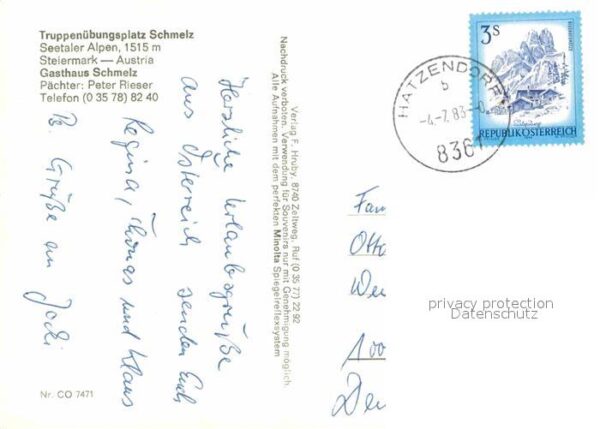 Truppenübungsplatz Schmelz
Seetaler Alpen, 1515 m
Steiermark — Austria
Gasthaus Schmelz
Pächter: Peter Rieser
Telefon (0 35 78) 82 40
Herzliche Urlaubsgrüße
aus Österreich senden Euch
Regina, Thomas und Klaus
B. Grüße an Jochi
Nr. CO 7471
Verlag F. Hruby, 8740 Zeltweg, Ruf (0 35 77) 22 92
Nachdruck verboten. Verwendung für Souvenirs nur mit Genehmigung möglich.
Alle Aufnahmen mit dem perfekten Minolta Spiegelreflexsystem
3 S
REPUBLIK ÖSTERREICH
HATZENDORF
b
-4.-7.83-0
8361
Fam
Otto
Wer
100
Der
privacy protection
Datenschutz